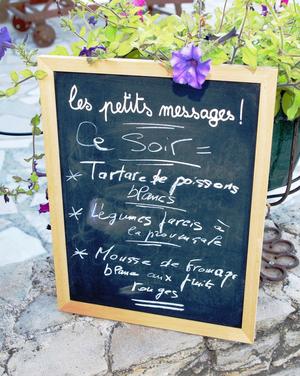 les petits messages!
Ce Soir =
* Tartare de poissons
blancs
* Légumes farcis à
la provençale
* Mousse de Fromage
blanc aux fruits
rouges